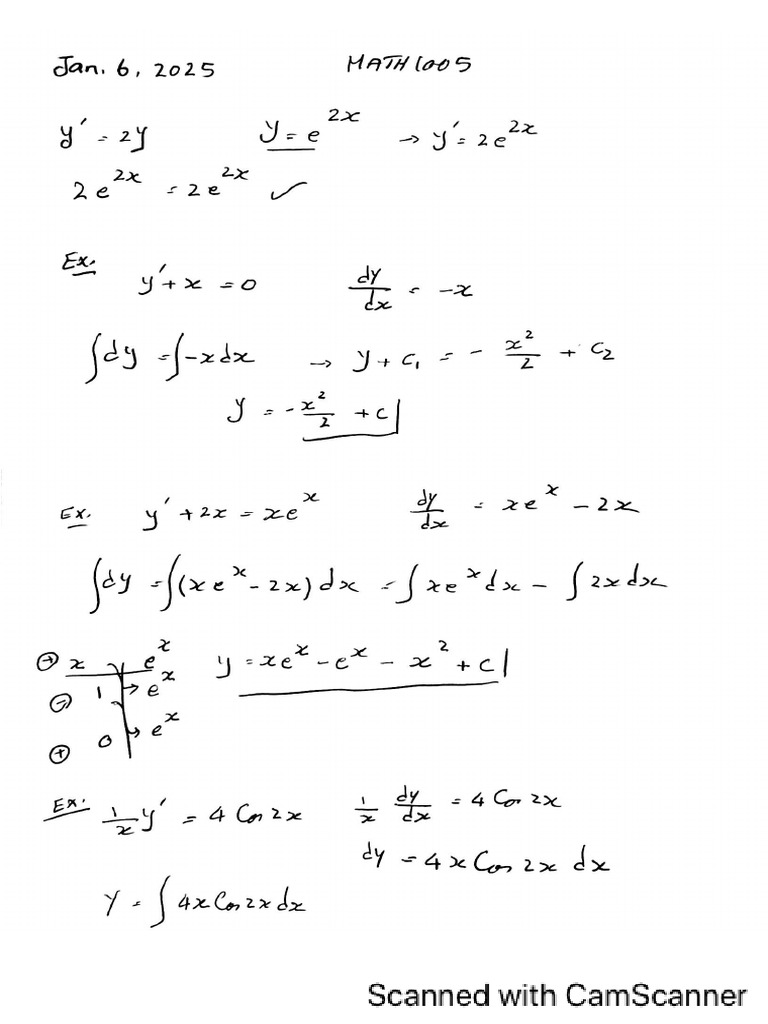 Jan. 6, 2025 MATH 1005
y' = 2y y = e^{2x} → y' = 2e^{2x}
2e^{2x} = 2e^{2x} ✓
Ex. y' + x = 0 dy/dx = -x
∫dy = ∫-x dx → y + c₁ = - x²/2 + c₂
y = - x²/2 + c
Ex. y' + 2x = xe^x dy/dx = xe^x - 2x
∫dy = ∫(xe^x - 2x) dx = ∫xe^x dx - ∫2x dx
⊕ x e^x y = xe^x - e^x - x² + c
⊖ 1 → e^x
⊕ 0 → e^x
Ex: 1/x y' = 4 Cos 2x 1/x dy/dx = 4 Cos 2x
dy = 4x Cos 2x dx
y = ∫4x Cos 2x dx
Scanned with CamScanner